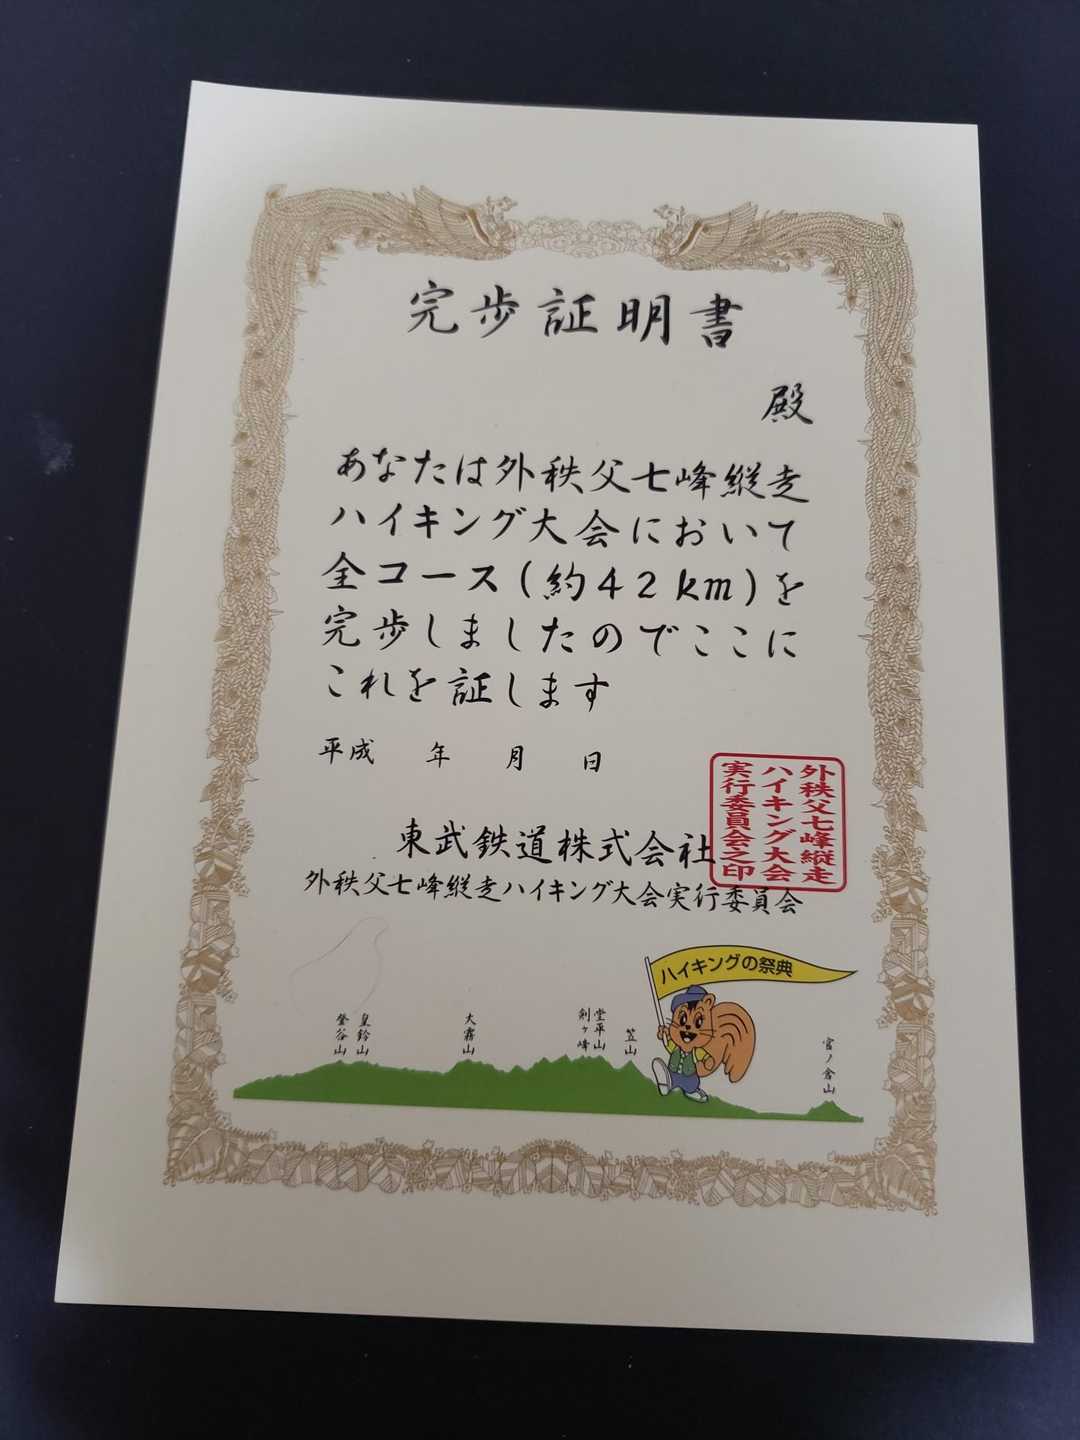 完歩証明書
殿
あなたは外秩父七峰縦走
ハイキング大会において
全コース(約42km)を
完歩しましたのでここに
これを証します
平成 年 月 日
東武鉄道株式会社
外秩父七峰縦走ハイキング大会実行委員会
外秩父七峰縦走
ハイキング大会
実行委員会之印
ハイキングの祭典
皇鈴山
登谷山
大霧山
堂平山
剣ヶ峰
笠山
官ノ倉山